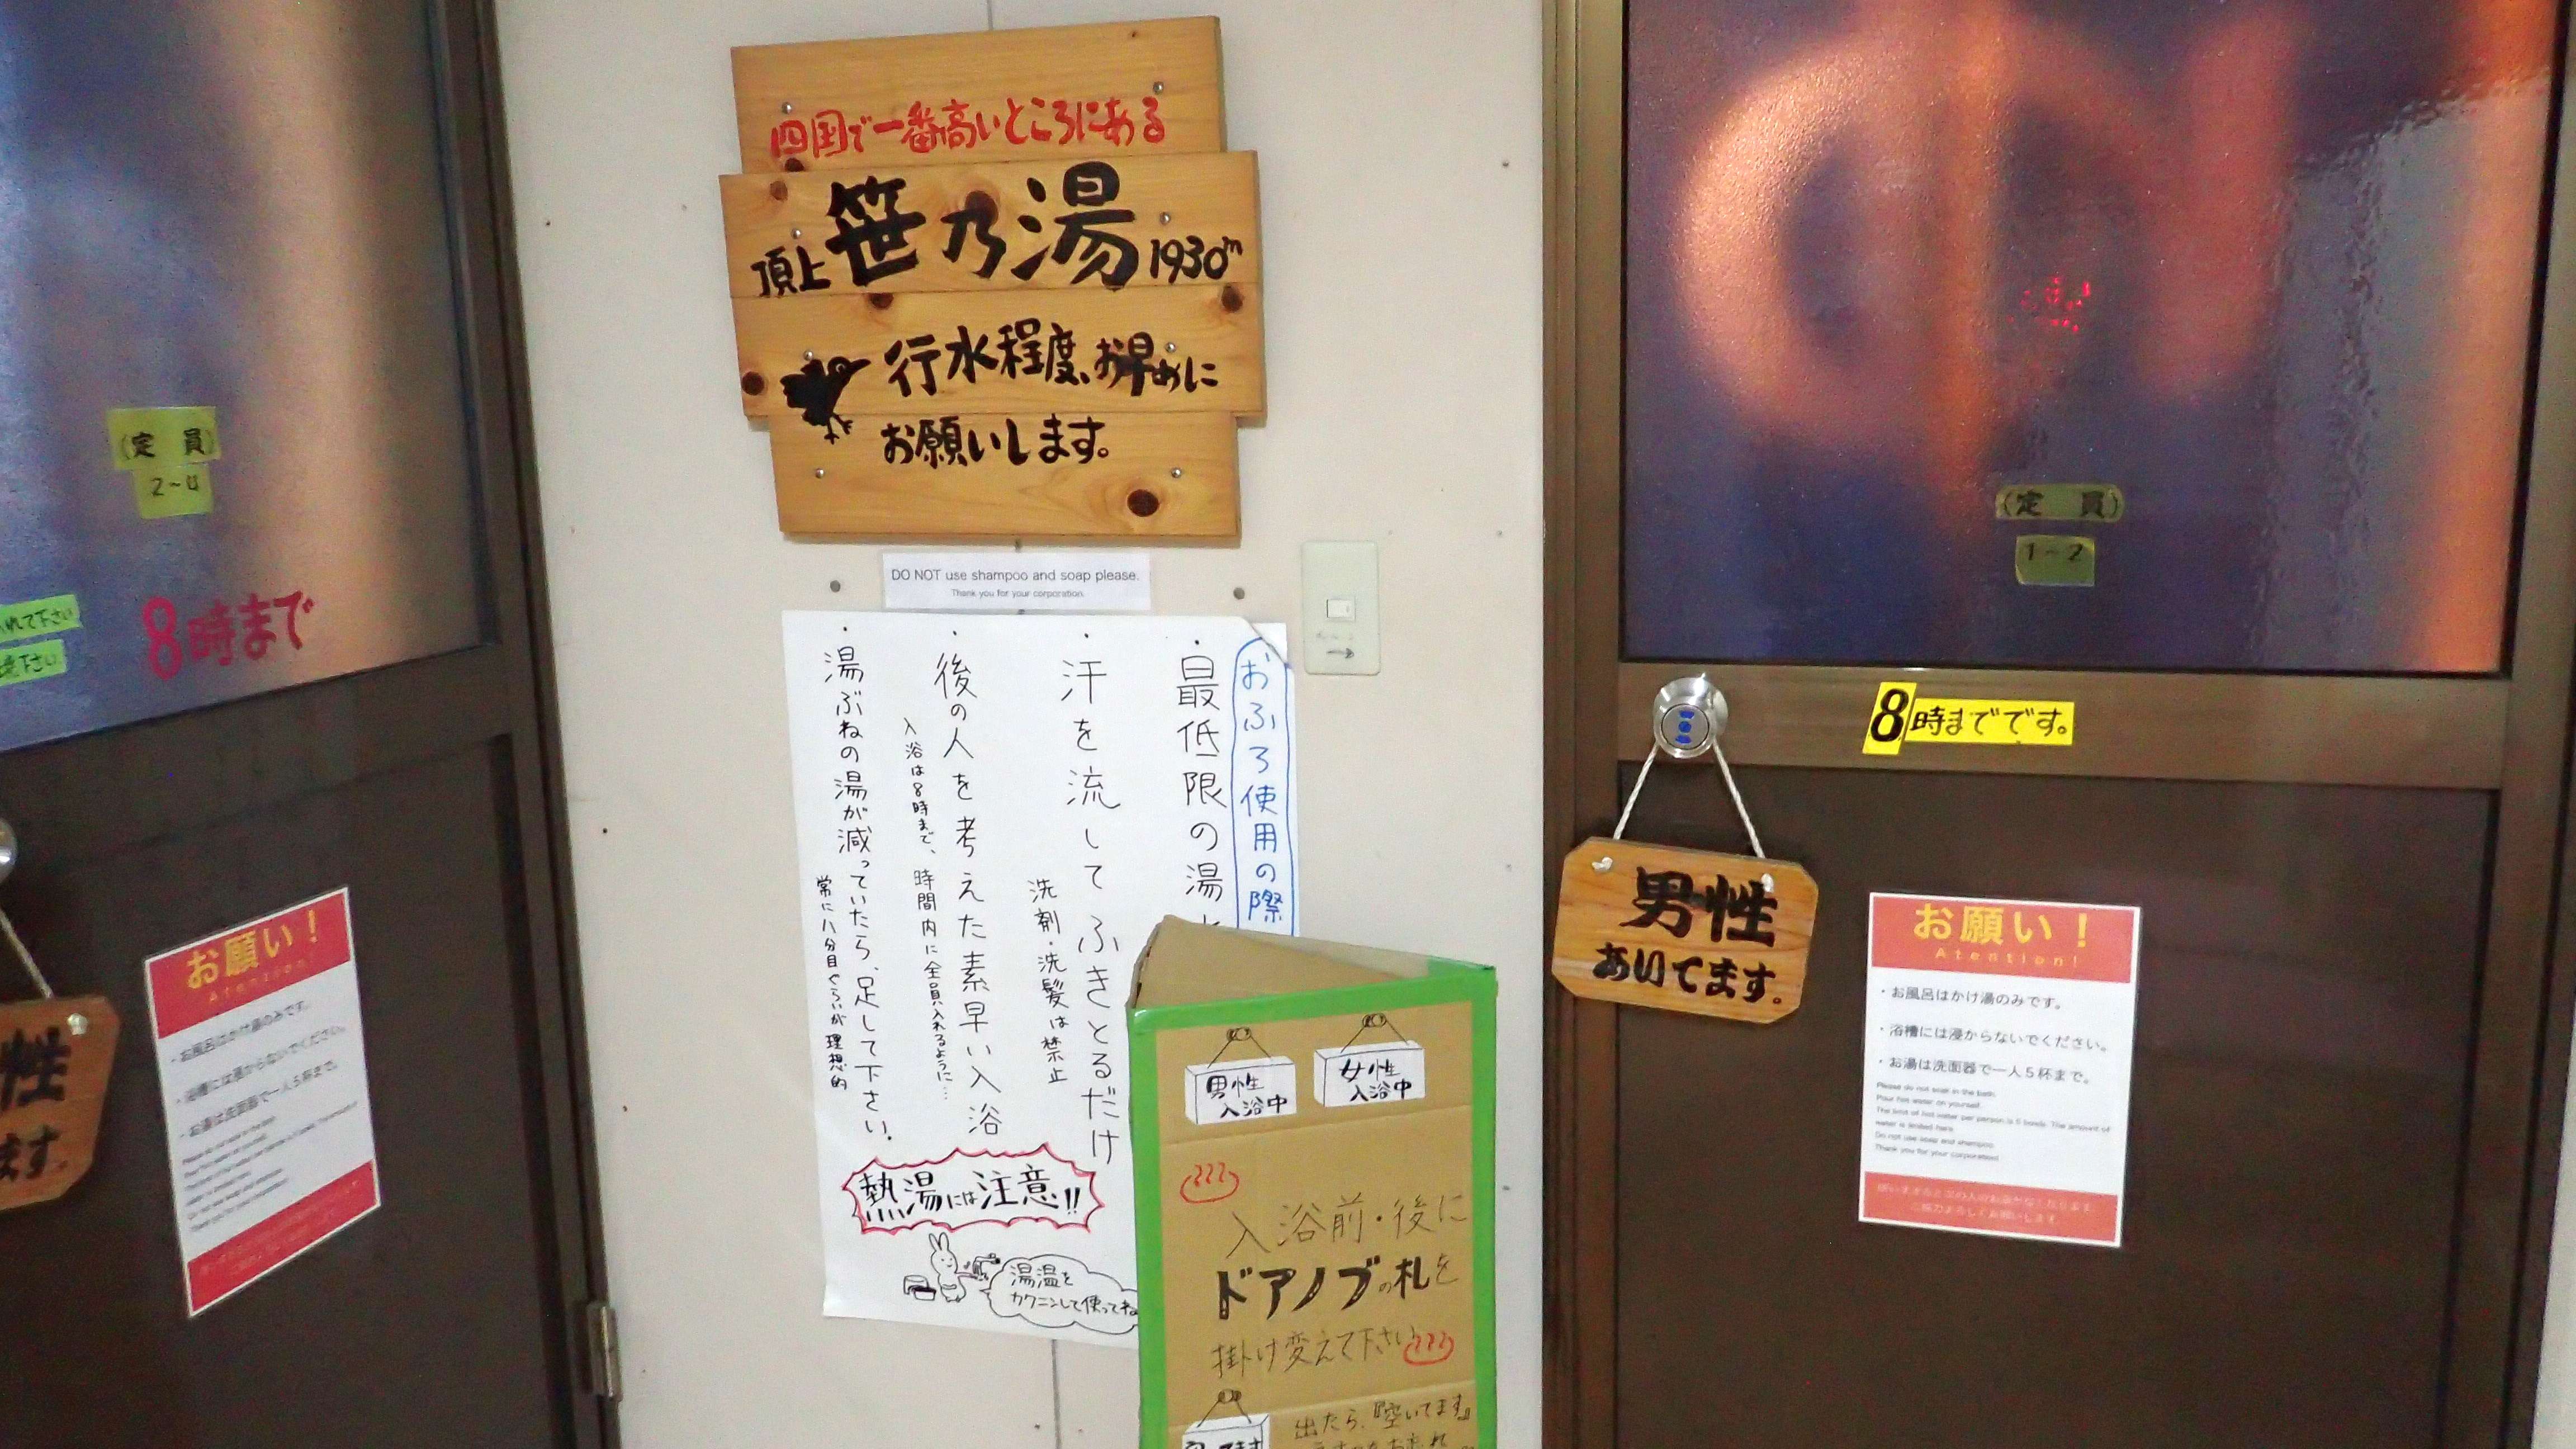 四国で一番高いところにある
頂上 笹乃湯 1930m
行水程度、お早めに
お願いします。
DO NOT use shampoo and soap please.
Thank you for your corporation.
おふろ使用の際
・最低限の湯
・汗を流してふきとるだけ
洗剤・洗髪は禁止
・後の人を考えた素早い入浴
入浴は8時まで、時間内に全員入れるように…
・湯ぶねの湯が減っていたら、足して下さい。
常に八分目ぐらいが理想的
熱湯には注意!!
湯温を
カクニンして使ってね
男性
入浴中
女性
入浴中
入浴前・後に
ドアノブの札を
掛け変えて下さい
出たら、『空いてます』
(定 員)
2~4
れて下さい
下さい
8時まで
性
ます。
お願い!
Atention!
・お風呂はかけ湯のみです。
・浴槽には浸からないでください。
・お湯は洗面器で一人5杯まで。
(定 員)
1~2
8時までです。
男性
あいてます。
お願い!
Atention!
・お風呂はかけ湯のみです。
・浴槽には浸からないでください。
・お湯は洗面器で一人5杯まで。
Please do not soak in the bath.
Pour hot water on yourself.
The amount of
water is limited here.
Do not use soap and shampoo.
Thank you for your corporation!